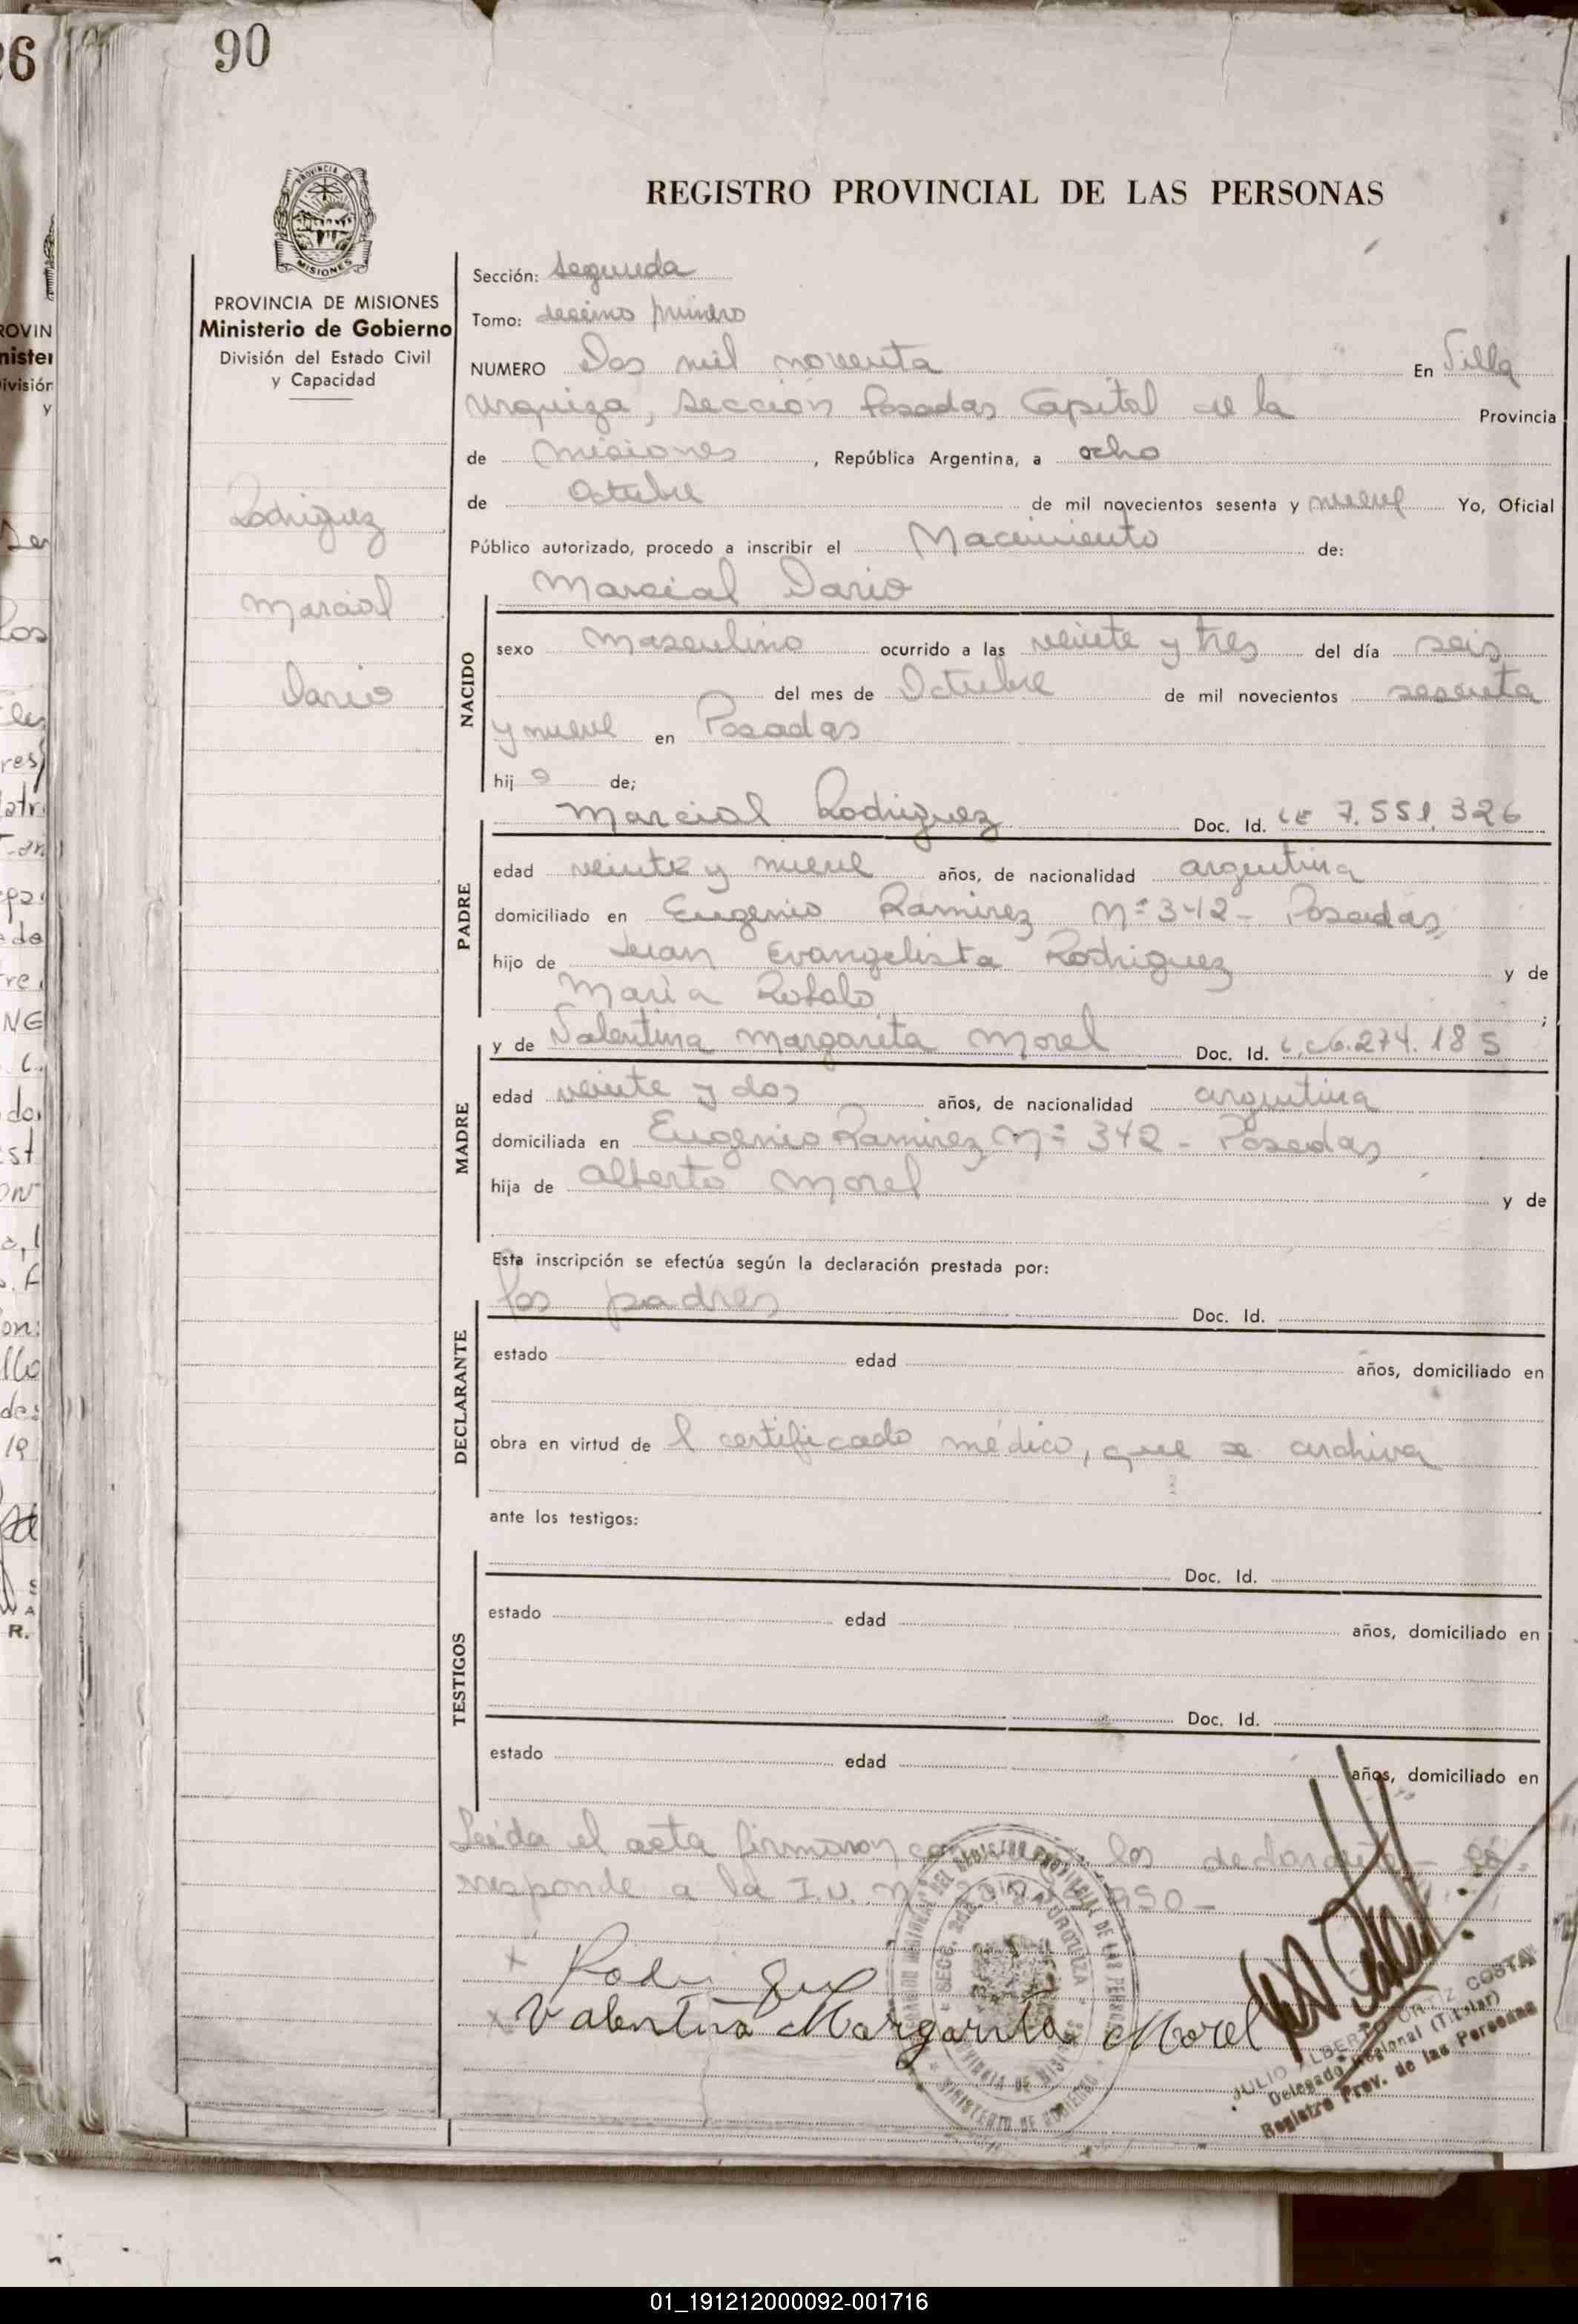 90
REGISTRO PROVINCIAL DE LAS PERSONAS
PROVINCIA DE MISIONES
Ministerio de Gobierno
División del Estado Civil
y Capacidad
Rodriguez
Marcial
Dario
Sección: Segunda
Tomo: decimo primero
NUMERO Dos mil noventa En Villa
Urquiza, Sección Posadas Capital de la Provincia
de Misiones, República Argentina, a ocho
de Octubre de mil novecientos sesenta y nueve Yo, Oficial
Público autorizado, procedo a inscribir el Nacimiento de:
Marcial Dario
NACIDO
sexo masculino ocurrido a las veinte y tres del día seis
del mes de Octubre de mil novecientos sesenta
y nueve en Posadas
hijo de;
Marcial Rodriguez Doc. Id. CE 7.551.326
PADRE
edad veinte y nueve años, de nacionalidad argentina
domiciliado en Eugenio Ramirez Nº 342 - Posadas
hijo de Juan Evangelista Rodriguez y de
Maria Rotalo;
y de Valentina Margarita Morel Doc. Id. 6.274.185
MADRE
edad veinte y dos años, de nacionalidad argentina
domiciliada en Eugenio Ramirez Nº 342 - Posadas
hija de Alberto Morel y de
Esta inscripción se efectúa según la declaración prestada por:
los padres Doc. Id.
DECLARANTE
estado edad años, domiciliado en
obra en virtud de l certificado médico, que se archiva
ante los testigos:
Doc. Id.
TESTIGOS
estado edad años, domiciliado en
Doc. Id.
estado edad años, domiciliado en
Leida el acta firmaron los declarantes - Co=
rresponde a la I.U. Nº 950 -
Valentina Margarita Morel
JULIO ALBERTO ORTIZ COSTA
Delegado Regional (Titular)
Registro Prov. de las Personas
01_191212000092-001716